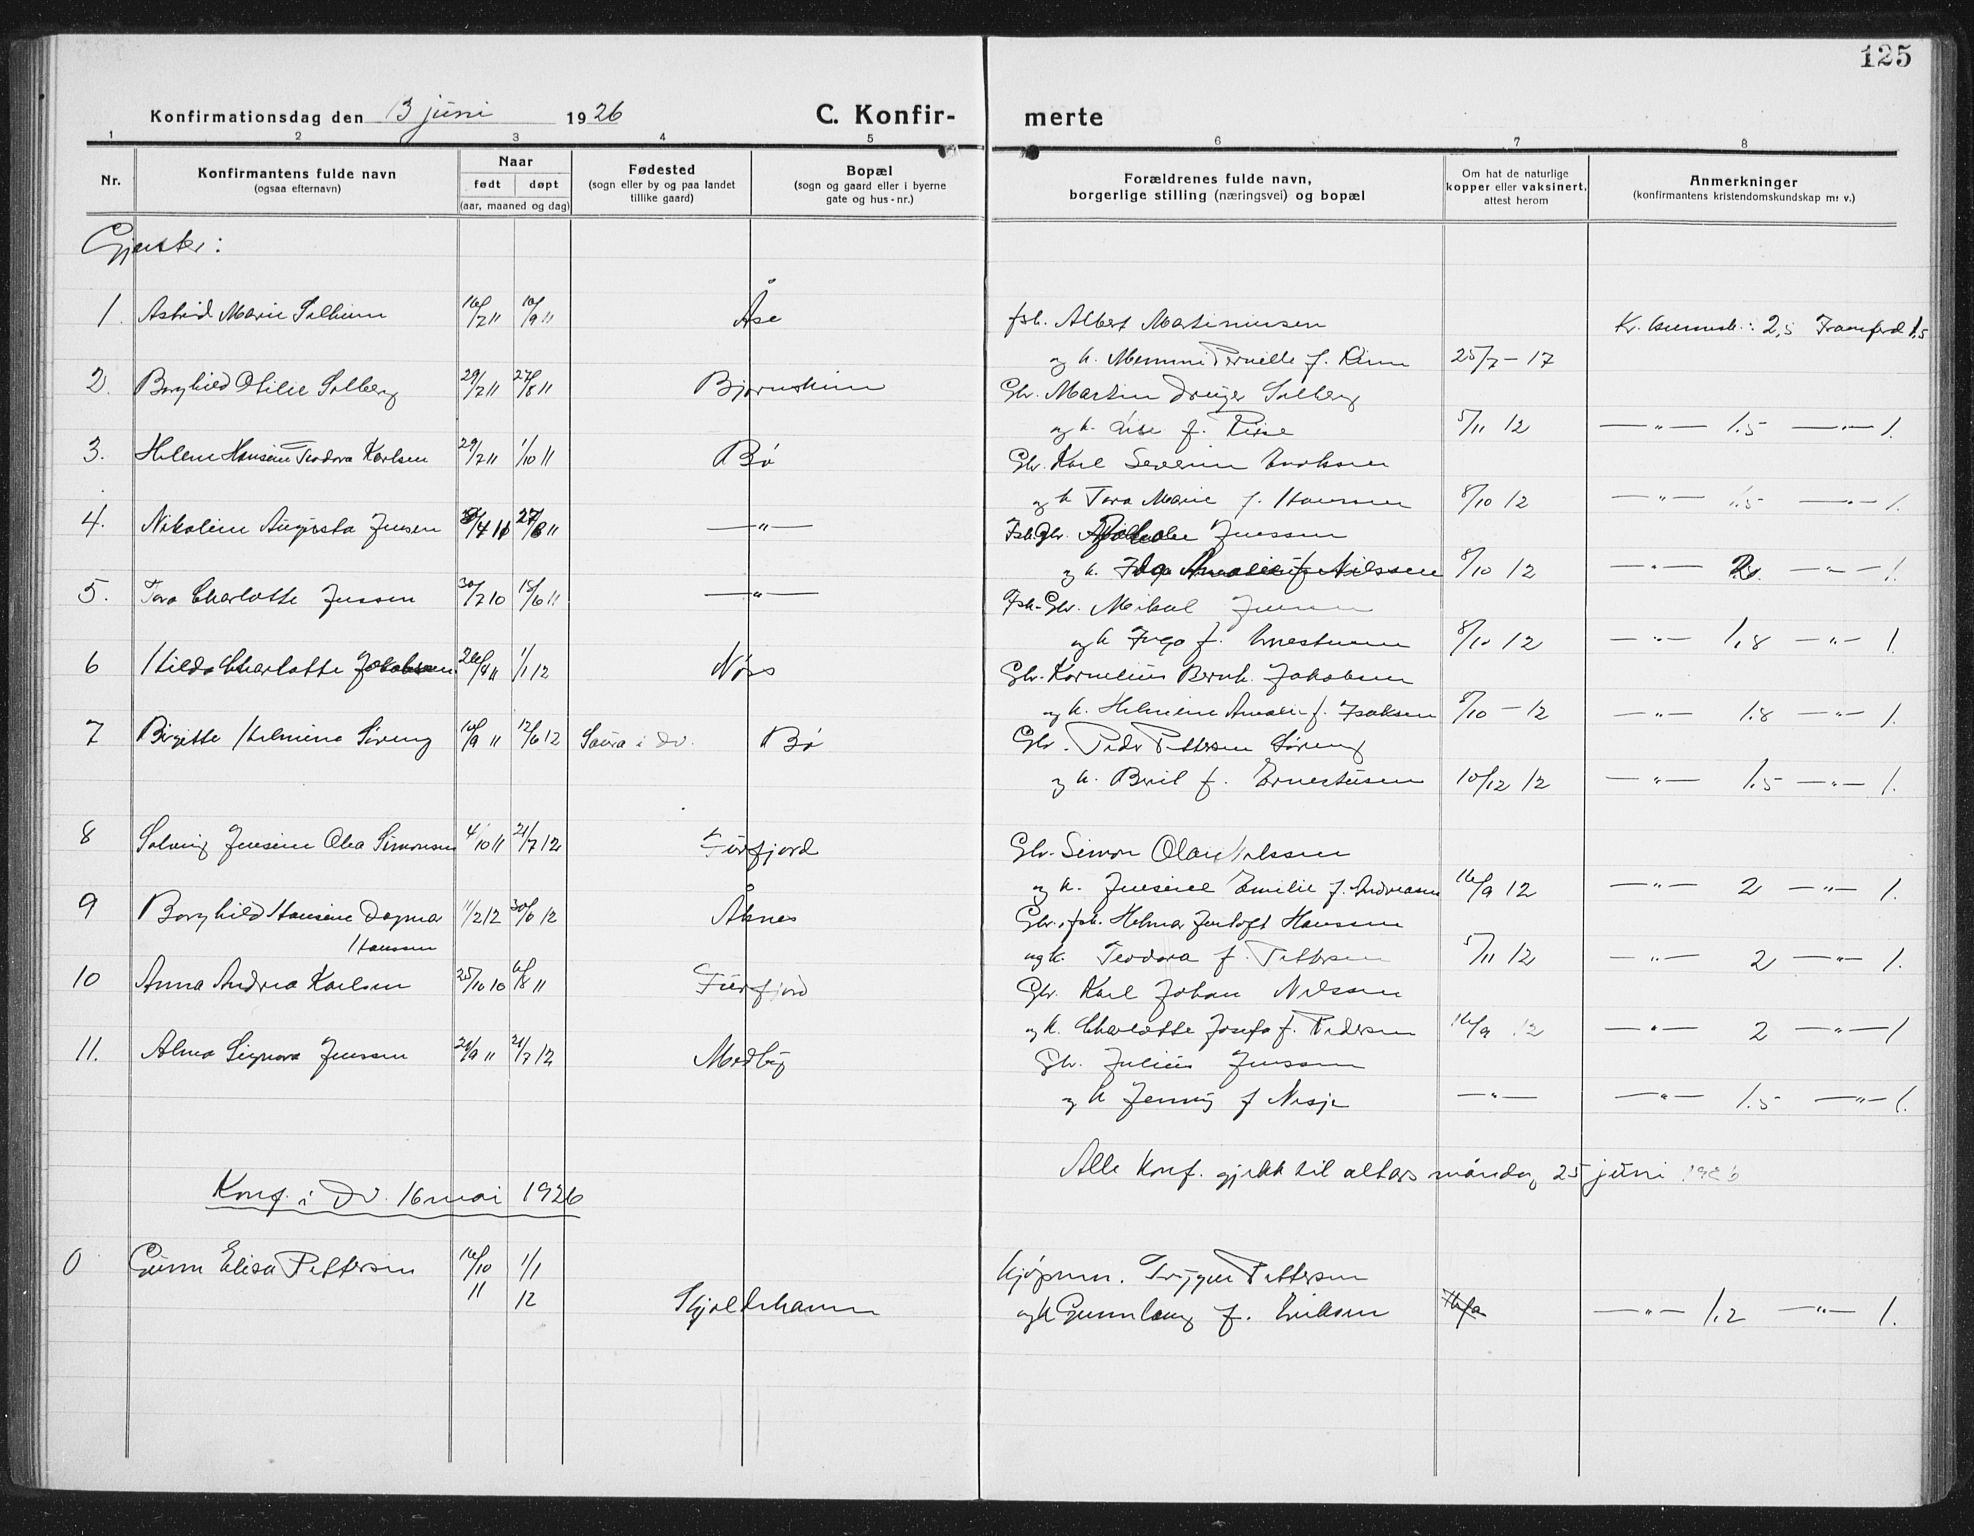 125
Konfirmationsdag den 13 juni 1926 C. Konfir- merte
1 2 3 4 5 6 7 8
Nr. Konfirmantens fulde navn Naar Fødested Bopæl Forældrenes fulde navn, Om hat de naturlige Anmerkninger
(ogsaa efternavn) født døpt (sogn eller by og paa landet (sogn og gaard eller i byerne borgerlige stilling (næringsvei) og bopæl kopper eller vaksinert, (konfirmantens kristendomskundskap m. v.)
(aar, maaned og dag) tillike gaard) gate og hus-nr.) attest herom
Gjenter:
1. Astrid Marie Solheim 16/7 11 10/9 11 Åse fsk. Albert Martinussen Kr. kunnsk.: 2,5 Framferd 1,5
og h. Pernille f. 25/7 - 17
2. Borghild Otilie Solberg 29/7 11 27/8 11 Bjørnskinn Gbr. Martin Solberg
og h. f. 5/11 12 —"— 1.5 —"— 1.
3. Helene Hansine Teodora Karlsen 29/7 11 1/10 11 Bø Gbr. Karl Severin
og h Tora Marie f. Hanssen 8/10 12 —"— 1.5 —"— 1.
4. Nikoline Augusta Jensen 27/8 11 —"— Fsk. Gbr. Jenssen
og h. Amalie f. Nilssen 8/10 12 —"— 2 —"— 1.
5. Tora Charlotte Jenssen 30/7 10 18/6 11 —"— Fsk-Gbr. Mikal Jenssen
og h Inga f. Ernestussen 8/10 12 —"— 1.8 —"— 1.
6 Hilda Charlotte Jakobsen 26/9 11 1/1 12 Nøss Gbr. Kornelius Bernh. Jakobsen
og h. Helmine Amalie f. Isaksen 8/10 - 12 —"— 1.8 —"— 1.
7 Birgitte Helmine Søreng 16/9 11 12/6 12 Saura i Dv. Bø Gbr. Peder Pettersen Søreng
og h. Beril f. Ernestussen 10/12 12 —"— 1.5 —"— 1.
8 Solveig Jensine Olea Simonsen 4/10 11 21/7 12 Finfjord Gbr. Simon Olai Nilssen
og h. Jensine Emilie f. Andreasen 16/9 12 —"— 2 —"— 1.
9 Borghild Hansine Dagmar 11/2 12 30/6 12 Åknes Gbr. fsk. Helmar Jentoft Hanssen
Hanssen
og h. Teodora f. Pettersen 5/11 12 —"— 2 —"— 1.
10 Anna Andrea Karlsen 25/10 10 6/8 11 Finfjord Gbr. Karl Johan Nilssen
og h. Charlotte Josefa f. Pedersen 16/9 12 —"— 2 —"— 1
11. Alma Signora Jenssen 21/7 12 Medby Gbr. Julius Jenssen
og h Jenny f Nesje —"— —"— 1.5 —"— 1.
Alle Konf. gjekk til alters måndag 25 juni 1926
Konf. i Dv. 16 mai 1926
0 Gunn Elisa Pettersen 16/10 11 1/1 12 Skjoldehamn Kjøpmn. Trygve Pettersen
og h Gunnlaug f. Eriksen —"— 1.2 —"— 1.